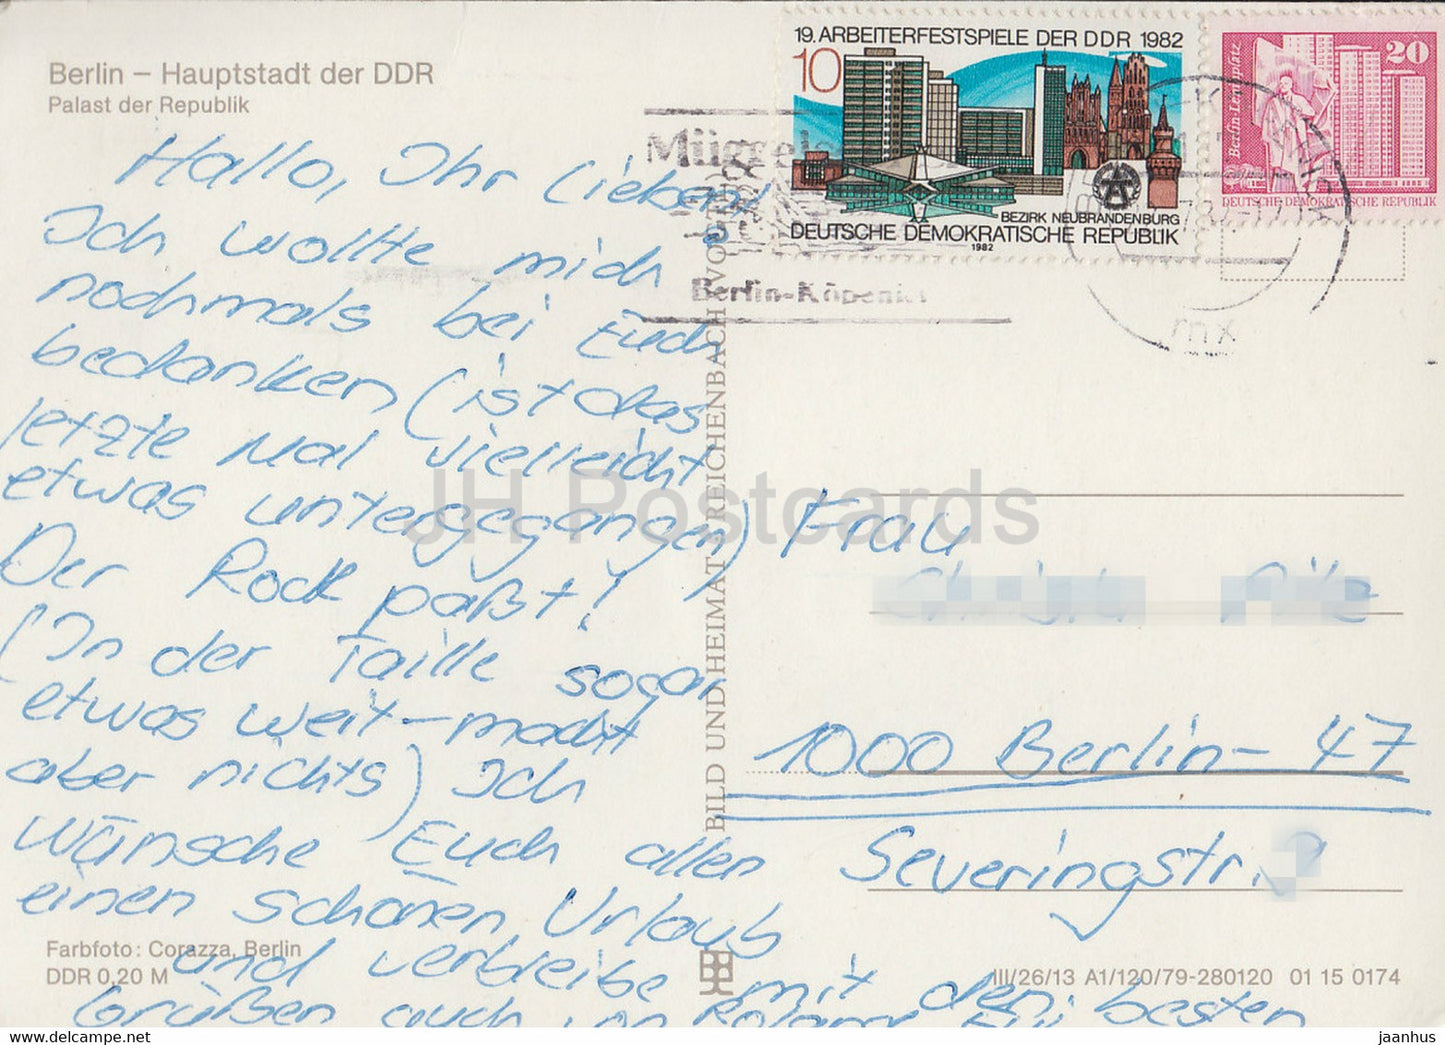 Berlin – Hauptstadt der DDR
Palast der Republik
19. ARBEITERFESTSPIELE DER DDR 1982
10
BEZIRK NEUBRANDENBURG
DEUTSCHE DEMOKRATISCHE REPUBLIK
1982
20
Berlin-Leninplatz
DEUTSCHE DEMOKRATISCHE REPUBLIK
Müggels
Berlin-Köpenick
mx
Hallo, Ihr Lieben!
Ich wollte mich
nochmals bei Euch
bedanken (ist das
letzte Mal vielleicht
etwas untergegangen)
Der Rock paßt!
(In der Taille sogar
etwas weit – macht
aber nichts) Ich
wünsche Euch allen
einen schönen Urlaub
und verbleibe mit den besten
Grüßen auch von Roland
BILD UND HEIMAT REICHENBACH VOGTL
Frau
1000 Berlin – 47
Severingstr.
Farbfoto: Corazza, Berlin
DDR 0,20 M
III/26/13 A1/120/79-280120 01 15 0174
JH Postcards
HipPostcard.com
jaanhus